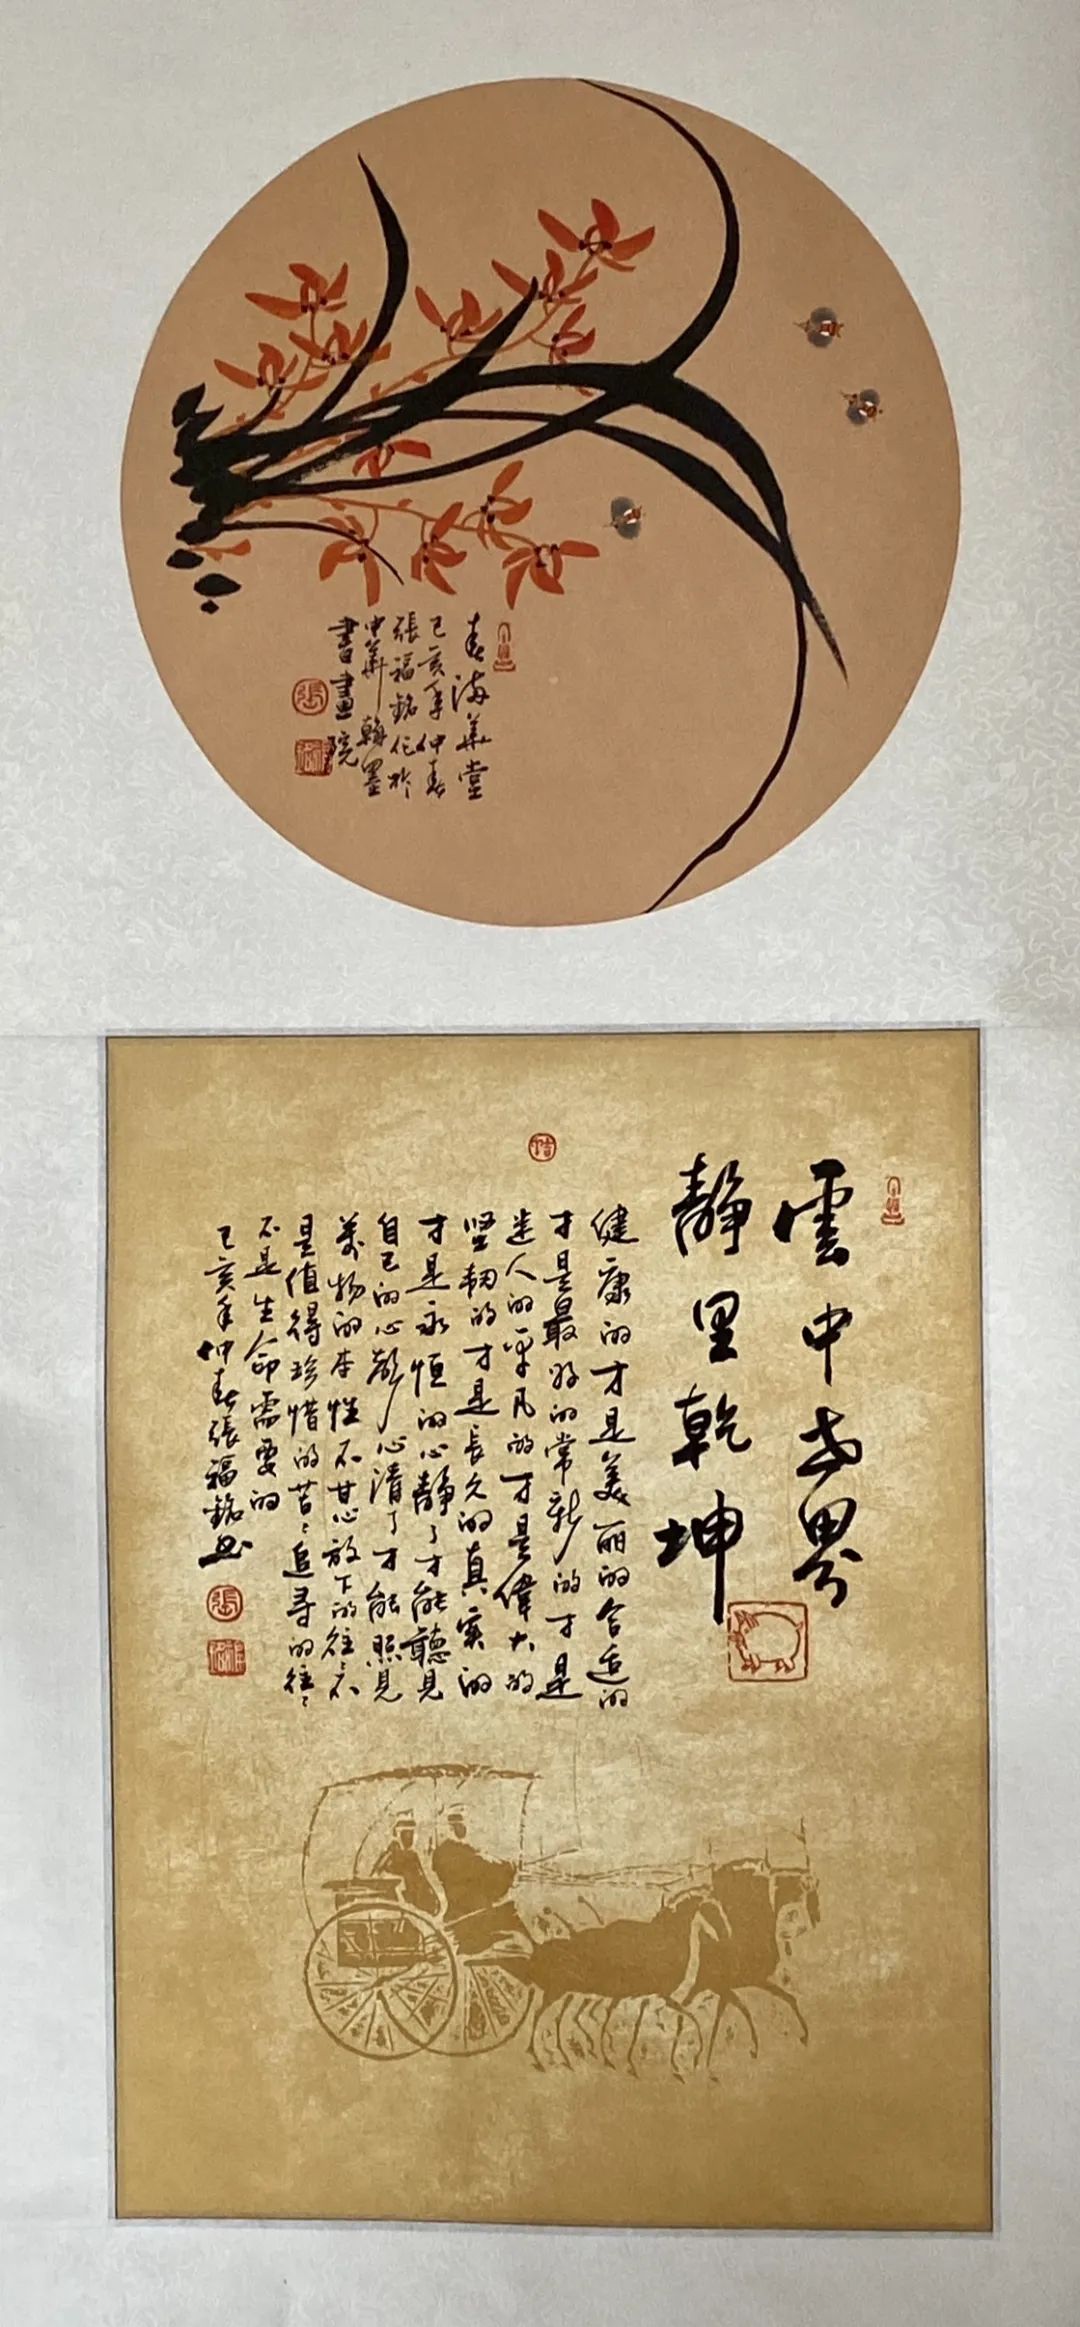 春满華堂
己亥年仲春
張福銘作於
中華翰墨
書畫院
雲中世界
靜里乾坤
健康的才是美丽的合适的
才是最好的常新的才是
迷人的平凡的才是偉大的
坚韧的才是長久的真実的
才是永恒的心静了才能聽見
自己的心声心清了才能照見
萬物的本性不甘心放下的往〻不
是值得珍惜的苦〻追寻的往〻
不是生命需要的
己亥年仲春張福銘书
張